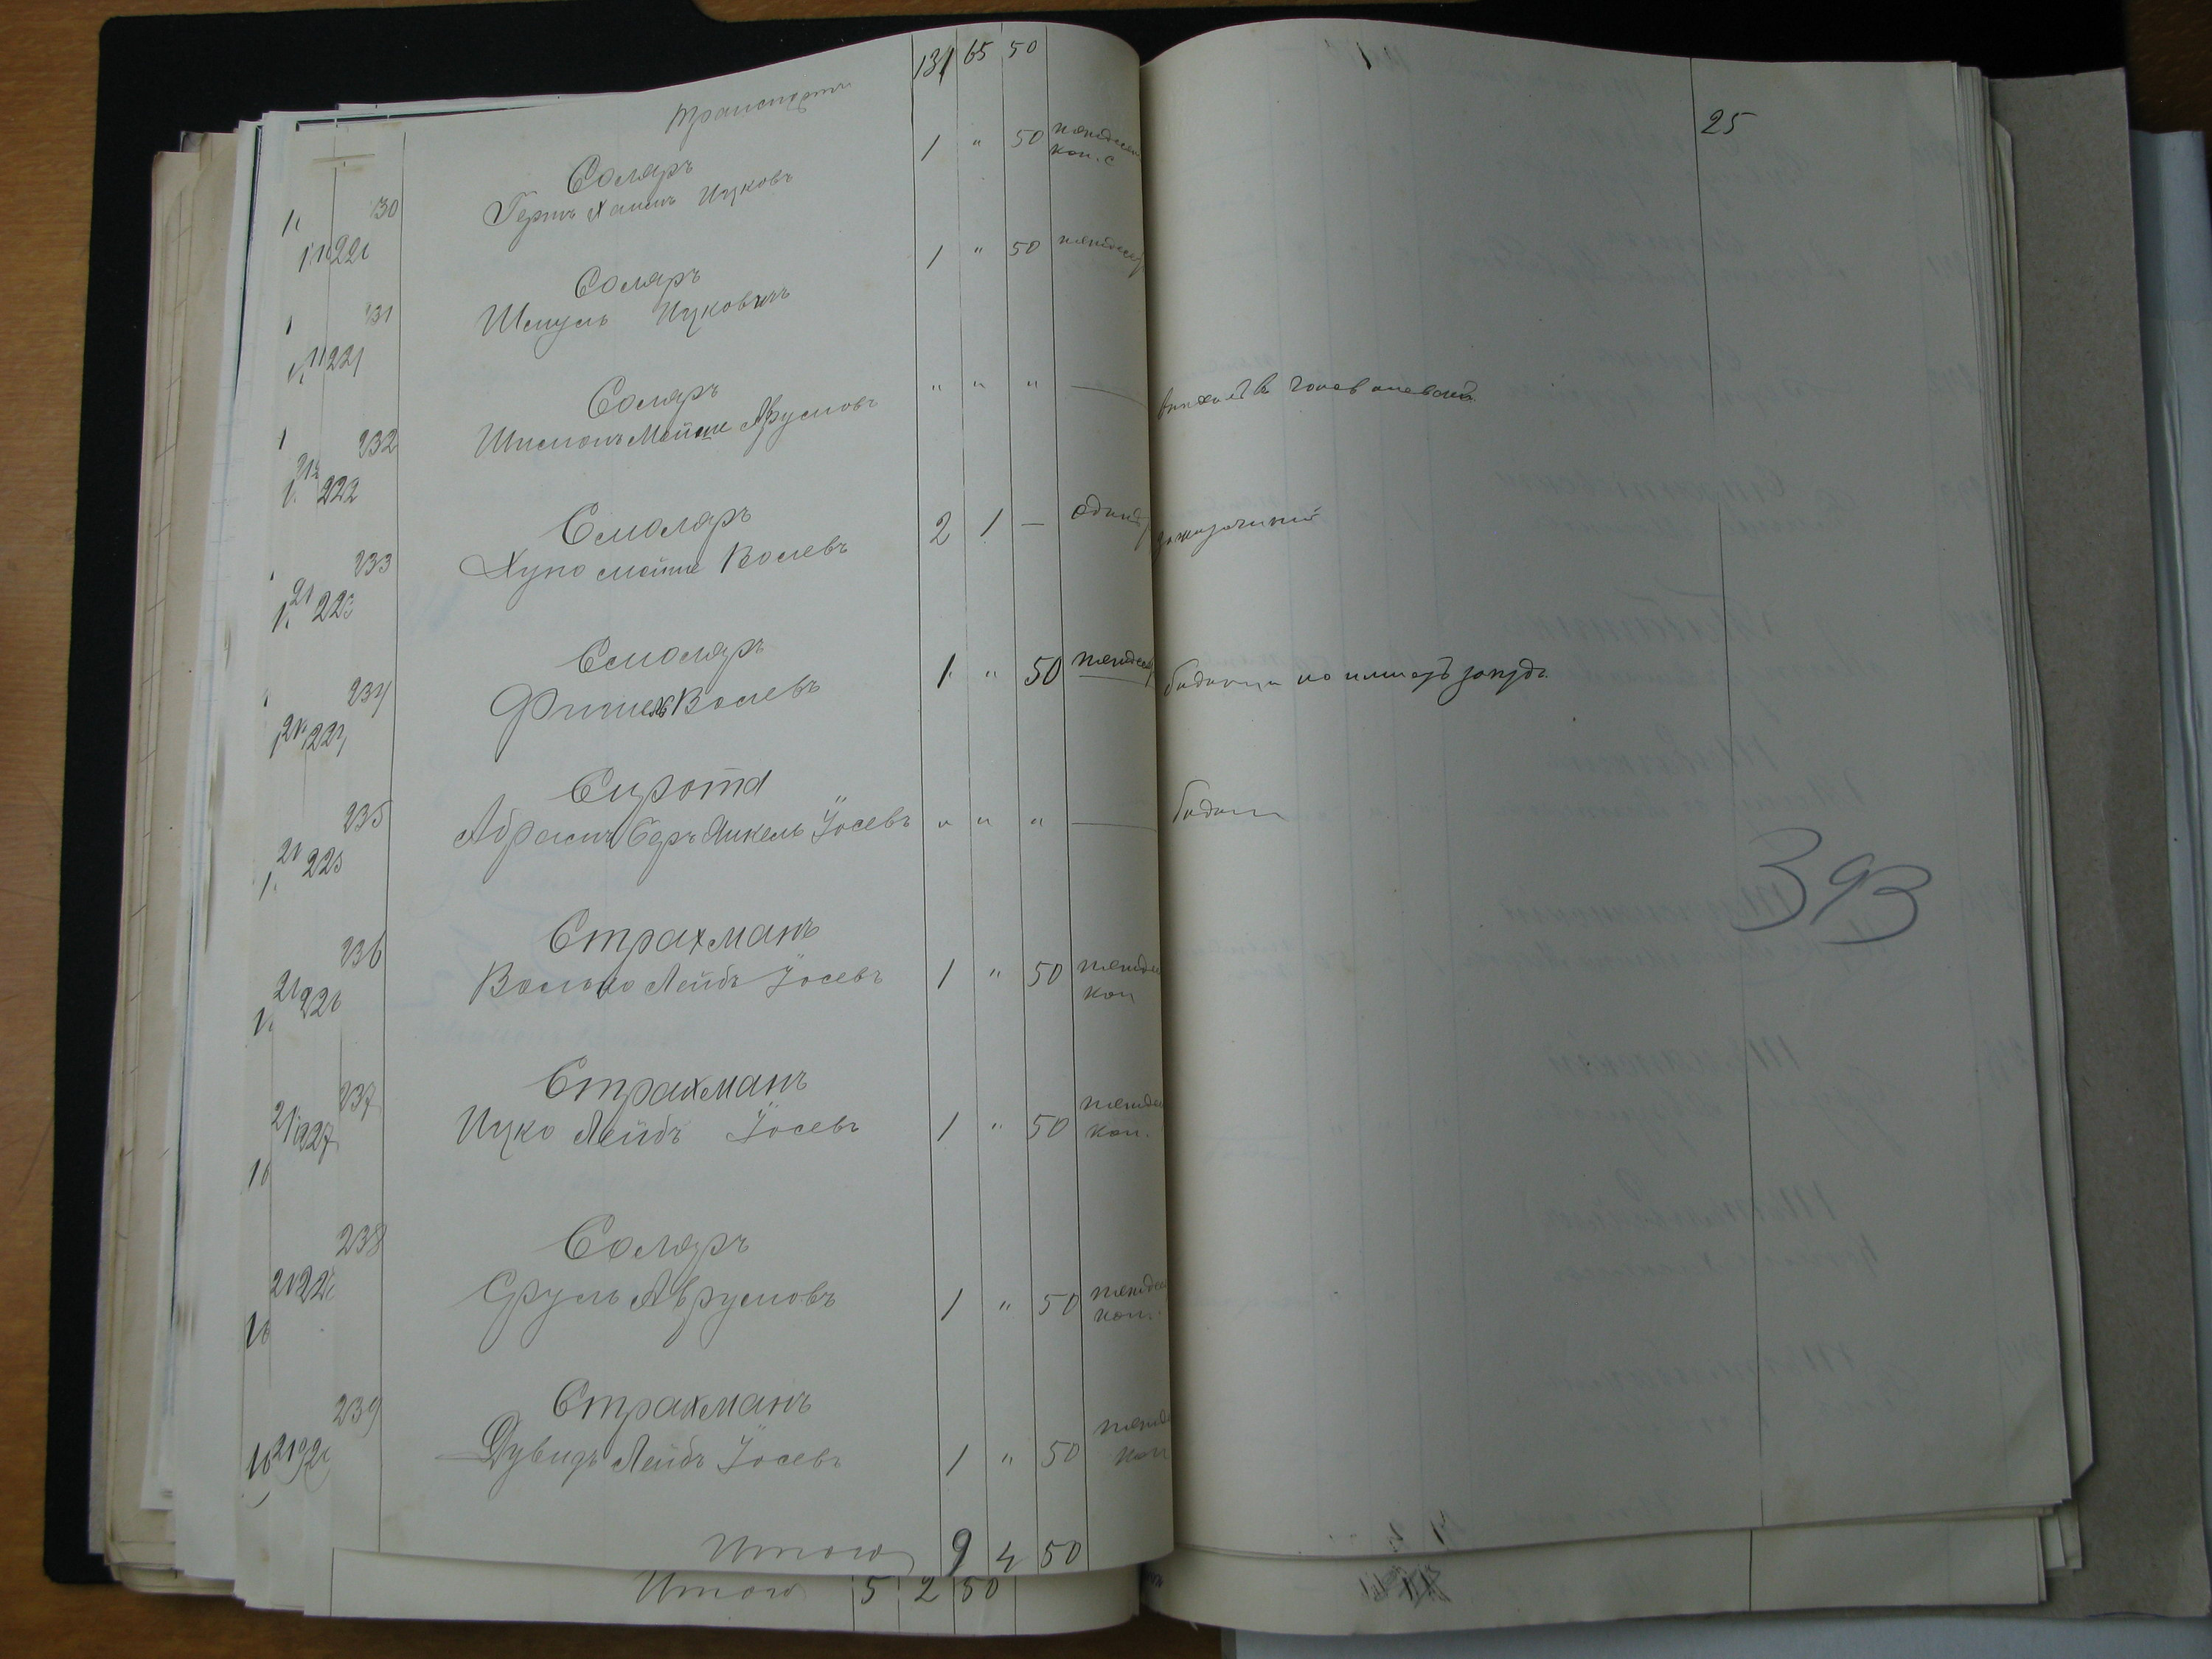 Транспортъ 131 65 50
25
230 Соляръ
Гершъ Хаимъ Ицковъ 1 " 50 пятдесят
коп. с
220
231 Соляръ
Шмуль Ицковичъ 1 " 50 пятдесят
221
232 Соляръ
Шимонъ Мойше Аврумовъ " " " —
222
233 Смоляръ
Хуно Мойше Волевъ 2 1 — один
223
234 Смоляръ
Фишель Волевъ 1 " 50 пятдесят
224
235 Сирота
Абрамъ Беръ Янкель Іосевъ " " " —
225
393
236 Страхманъ
Волько Лейбъ Іосевъ 1 " 50 пятдес
коп
226
237 Страхманъ
Ицко Лейбъ Іосевъ 1 " 50 пятдес
коп.
227
238 Соляръ
Сруль Аврумовъ 1 " 50 пятдес
коп.
228
239 Страхманъ
Дувидъ Лейбъ Іосевъ 1 " 50 пятде
коп
Итого 9 4 50
Итого 5 2 50